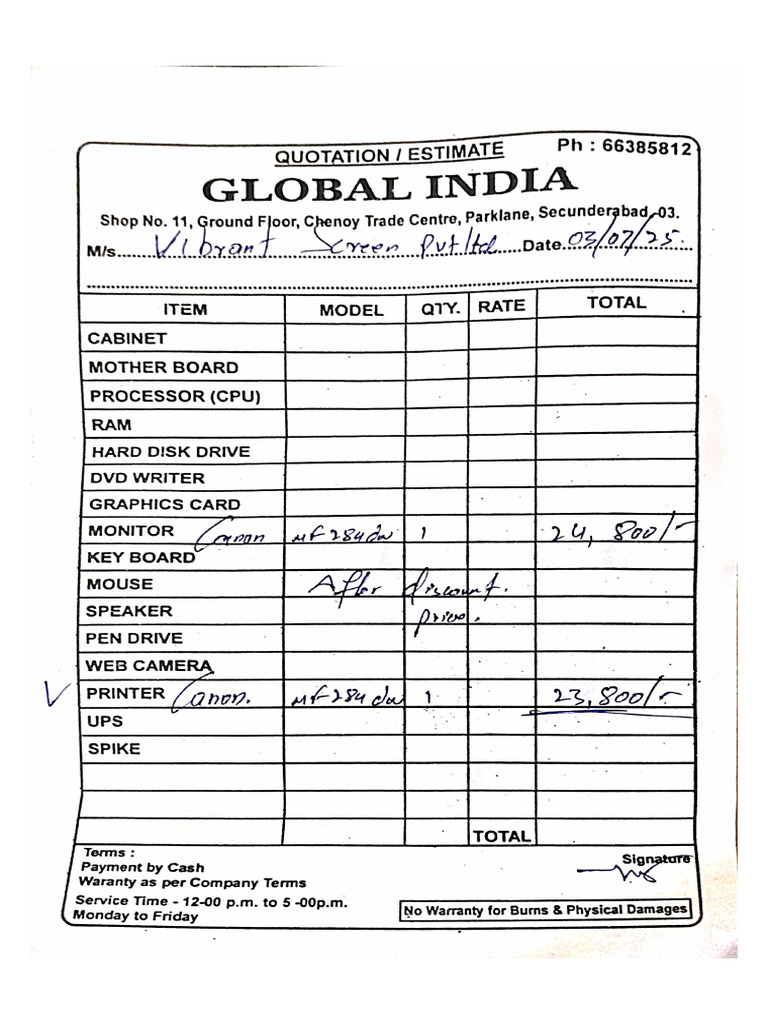 QUOTATION / ESTIMATE Ph : 66385812
GLOBAL INDIA
Shop No. 11, Ground Floor, Chenoy Trade Centre, Parklane, Secunderabad -03.
M/s Vibrant Screen Pvt ltd Date 03/07/25.
ITEM MODEL QTY. RATE TOTAL
CABINET
MOTHER BOARD
PROCESSOR (CPU)
RAM
HARD DISK DRIVE
DVD WRITER
GRAPHICS CARD
MONITOR Canon MF284dw 1 24,800/-
KEY BOARD
MOUSE After discount.
SPEAKER price.
PEN DRIVE
WEB CAMERA
PRINTER Canon. MF284dw 1 23,800/-
UPS
SPIKE
TOTAL
Terms : Signature
Payment by Cash
Waranty as per Company Terms
Service Time - 12-00 p.m. to 5 -00p.m.
Monday to Friday No Warranty for Burns & Physical Damages